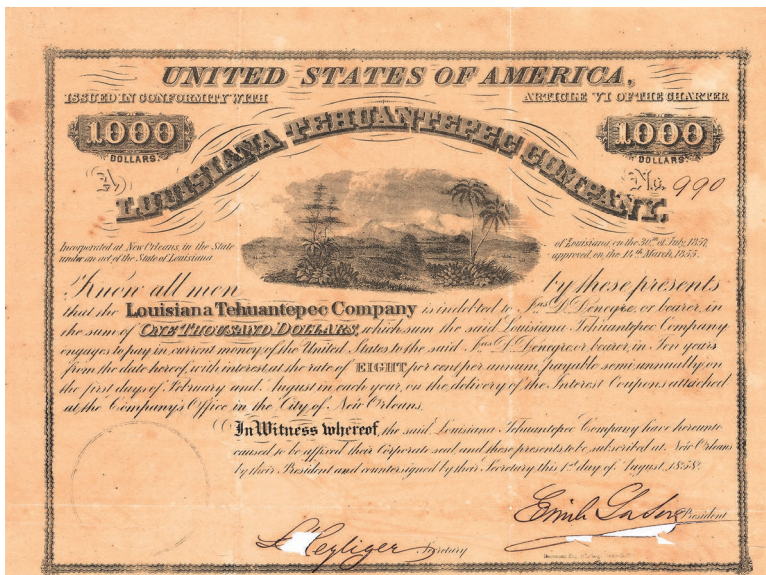 UNITED STATES OF AMERICA,
ISSUED IN CONFORMITY WITH ARTICLE VI OF THE CHARTER
1000 1000
DOLLARS. DOLLARS.
LOUISIANA TEHUANTEPEC COMPANY.
No. 990
Incorporated at New Orleans, in the State of Louisiana, on the 30th of July, 1857,
under an act of the State of Louisiana approved, on the 14th March, 1855.
Know all men by these presents
that the Louisiana Tehuantepec Company is indebted to Jas D. Denegre, or bearer, in
the sum of ONE THOUSAND DOLLARS, which sum the said Louisiana Tehuantepec Company
engages to pay in current money of the United States to the said Jas D. Denegre or bearer, in Ten years
from the date hereof, with interest at the rate of EIGHT per cent per annum, payable semi annually on
the first days of February and August in each year, on the delivery of the Interest Coupons attached
at the Company's Office in the City of New Orleans.
In Witness whereof, the said Louisiana Tehuantepec Company have hereunto
caused to be affixed their Corporate seal and these presents to be subscribed at New Orleans
by their President and countersigned by their Secretary this 1st day of August, 1858.
President
Heyliger Secretary